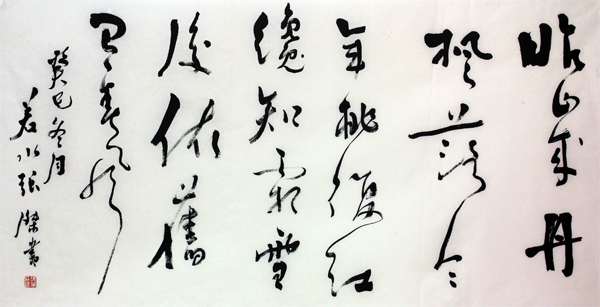 昨嵗丹
楓落今
年桃復紅
纔知霜雪
後依舊
是春風
癸巳冬月
若水張書